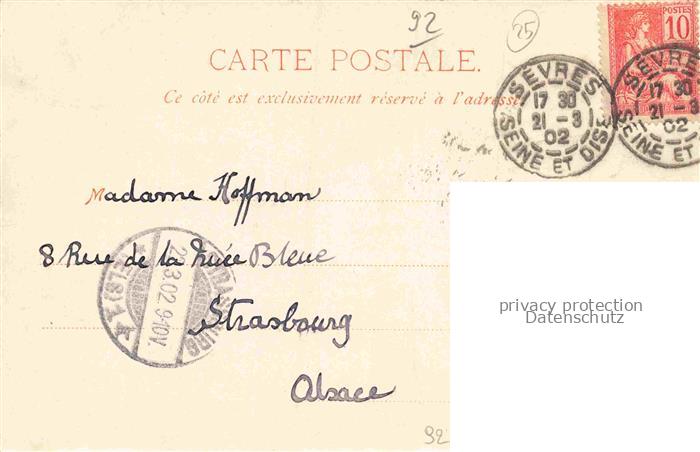 92
25
POSTES
10
CARTE POSTALE.
Ce côté est exclusivement réservé à l'adresse
SÈVRES
17 30
21 - 3
02
SEINE ET OISE
SÈVRES
17 30
21 - 3
02
SEINE ET OISE
Madame Hoffman
8 Rue de la Nuée Bleue
Strasbourg
Alsace
STRASSBURG
.3.02.9-10V.
(ELS) 1
privacy protection
Datenschutz
92